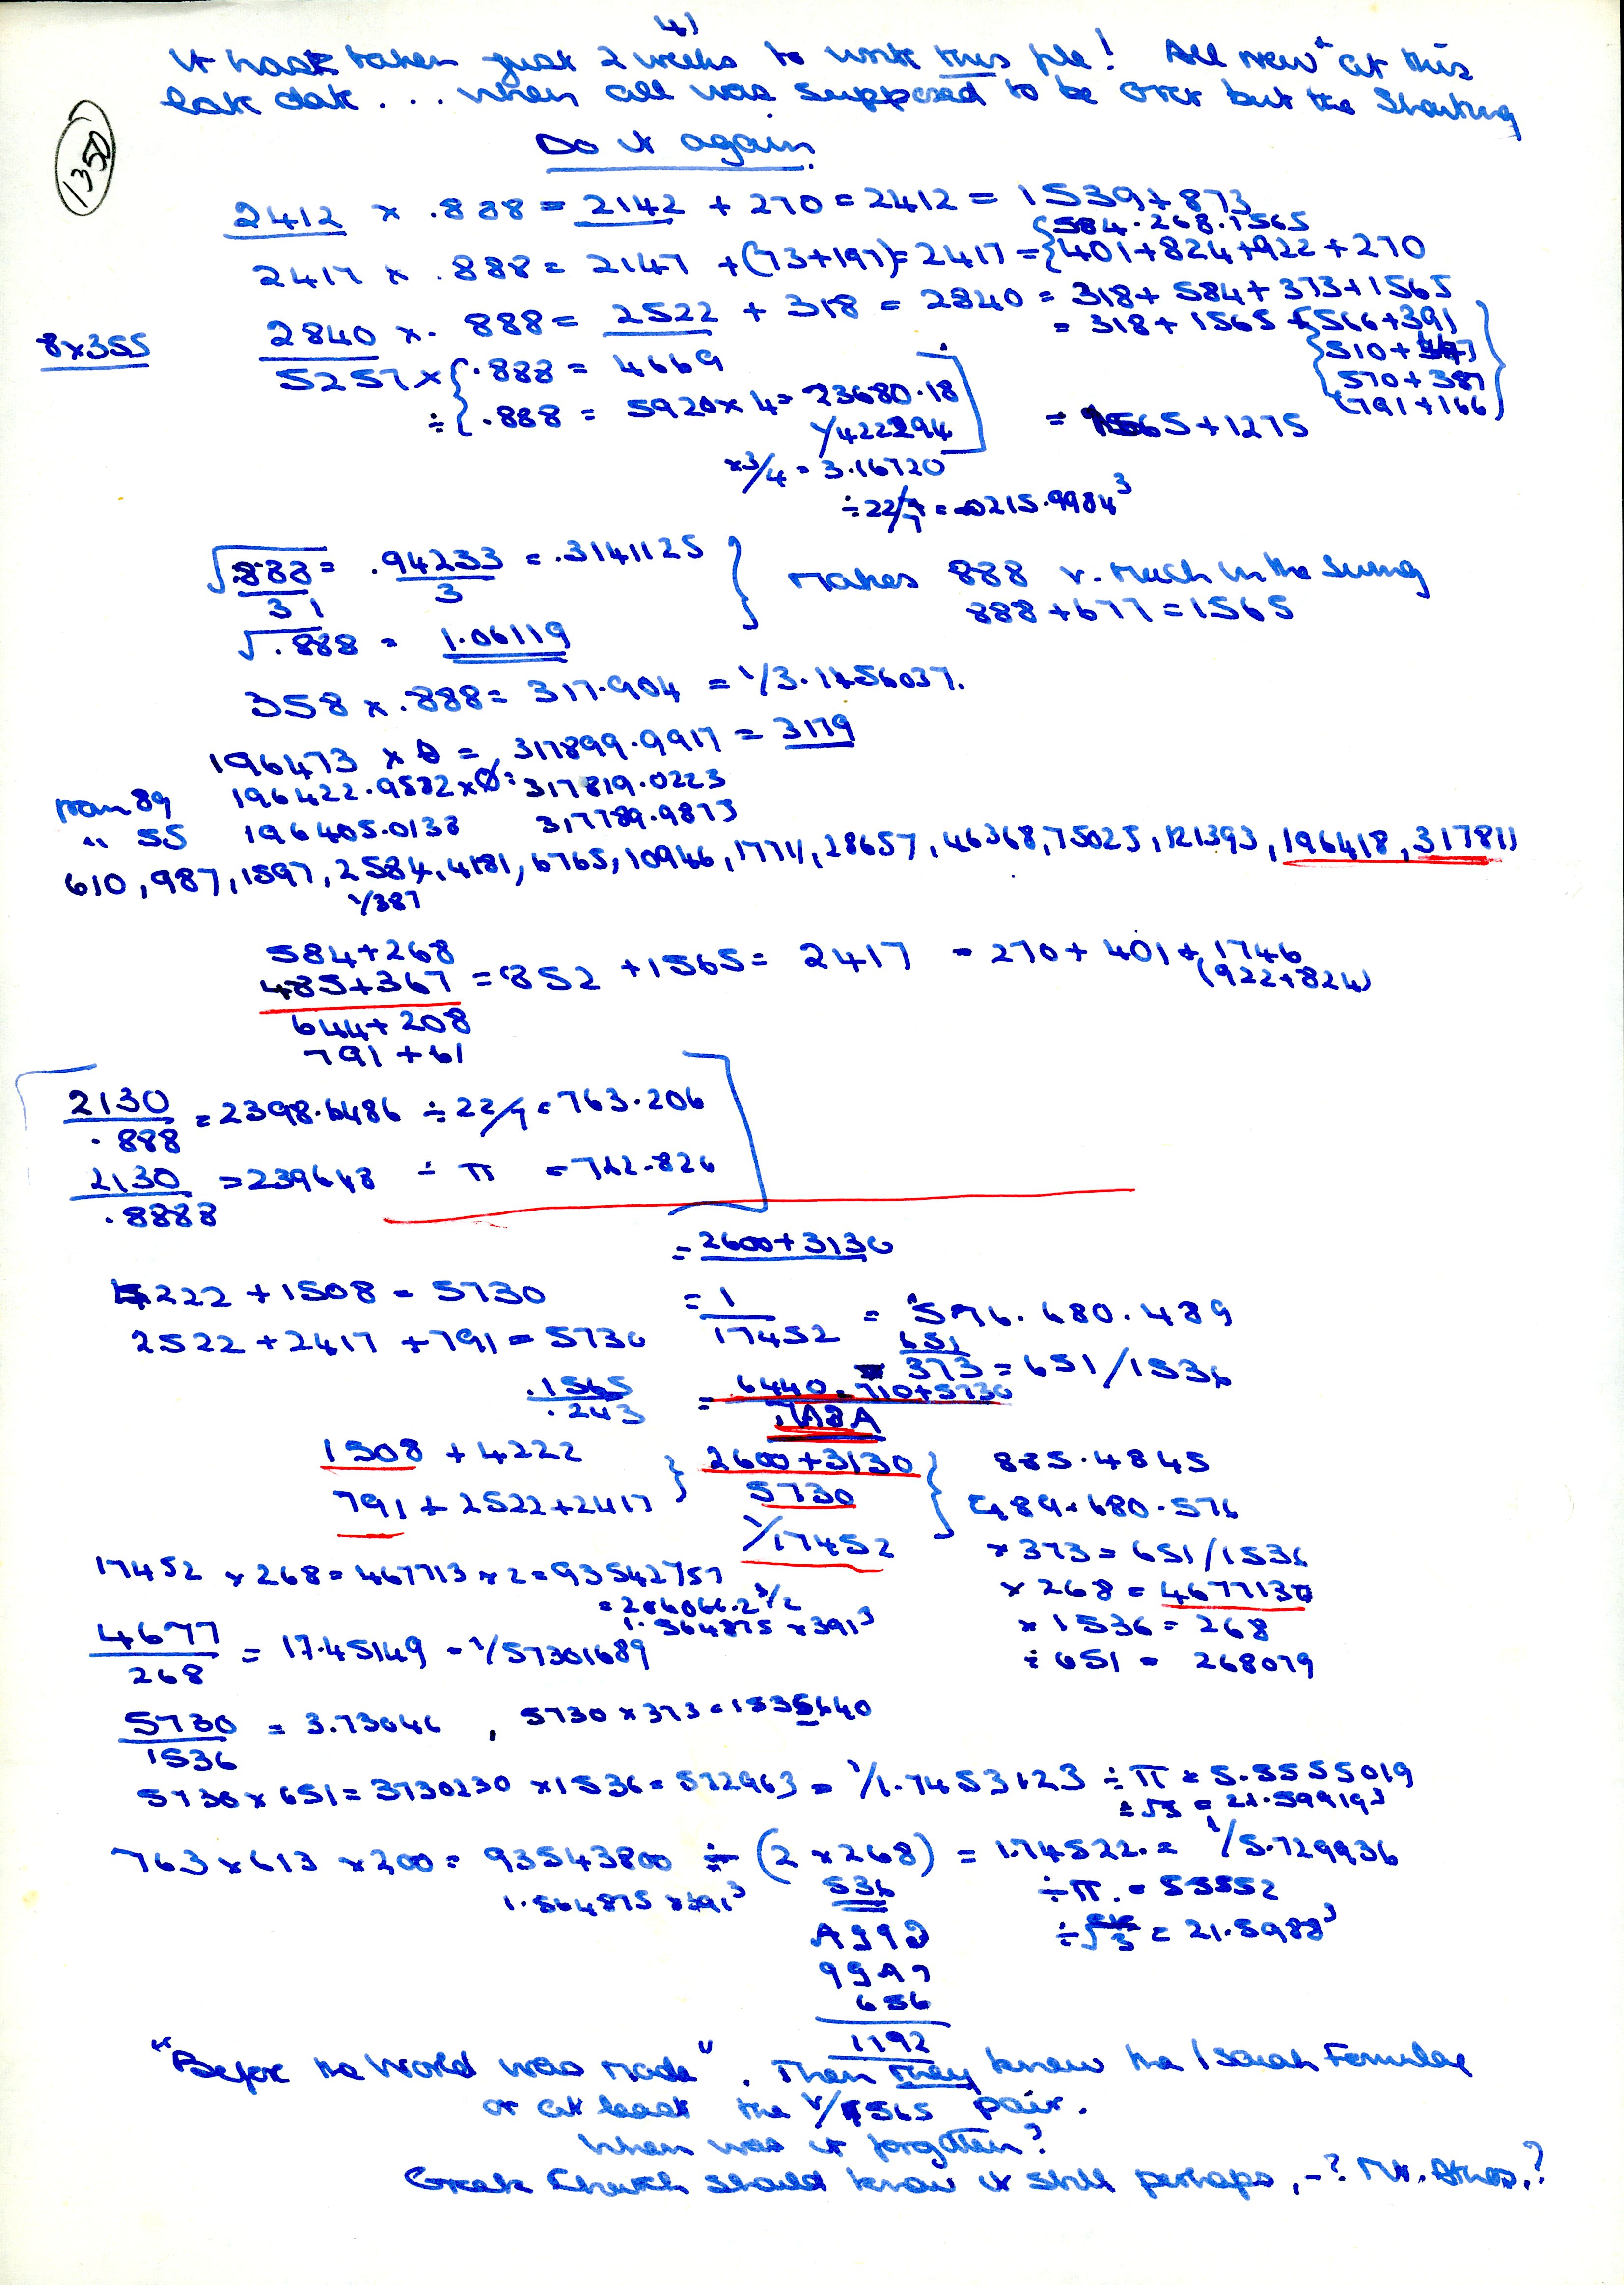 4)
It has taken just 2 weeks to write this file! All new at this
late date... when all was supposed to be over but the Shouting
Do it again.
1350
2412 × .888 = 2142 + 270 = 2412 = 1539 + 873
584.268.1565
2417 × .888 = 2147 + (73+197) = 2417 = {401+824+922+270
8×355
2840 × .888 = 2522 + 318 = 2840 = 318 + 584 + 373 + 1565
= 318 + 1565 + {566+391)
510 +
570 + 387
(791+166)
5257 × { .888 = 4669
÷ { .888 = 5920 × 4 = 23680.18
1/422294
= 1565+1275
×3/4 = 3.16720
÷22/7 = 0215.9984³
√.888/3 = .94233/3 = .3141125
makes 888 v. much in the swing
888 + 677 = 1565
1/√.888 = 1.06119
358 × .888 = 317.904 = 1/3.1456037.
196473 × Ø = 317899.9917 = 3179
from 89 196422.9582 × Ø = 317819.0223
" 55 196405.0138 317789.9873
610, 987, 1597, 2584, 4181, 6765, 10946, 17711, 28657, 46368, 75025, 121393, 196418, 317811
1/387
584 + 268
485 + 367 = 852 + 1565 = 2417 = 270 + 401 + 1746
(922+824)
644 + 208
791 + 61
2130/.888 = 2398.6486 ÷ 22/7 = 763.206
2130/.8888 = 239648 ÷ π = 762.826
= 2600 + 3130
4222 + 1508 = 5730
= 1/17452 = 576.680.489
2522 + 2417 + 791 = 5730
651
373 = 651/1536
.1565/.243
= 6440 = 710+5730
1508 + 4222
791 + 2522 + 2417
2600 + 3130
5730
1/17452
885.4845
489.680.576
× 373 = 651/1536
× 268 = 4677136
× 1536 = 268
÷ 651 = 268079
17452 × 268 = 467713 × 2 = 93542757
= 206066.2 3/2
1.564875 × 391³
4677/268 = 17.45149 = 1/57301689
5730/1536 = 3.73046 , 5730 × 373 = 1535640
5730 × 651 = 3730230 × 1536 = 572963 = 1/1.7453123 ÷ π = 5.5555019
÷ √3 = 21.59919³
763 × 613 × 200 = 93543800 ÷ (2 × 268) = 1.74522. = 1/5.729936
1.564875 × 391³
536
÷ π. = 55552
= 21.5988³
656
1192
"Before the World was made". Then they knew the Isaiah Formulae
or at least the 1/1565 pair.
When was it forgotten?
Greek Church should know it still perhaps, -? Mr.